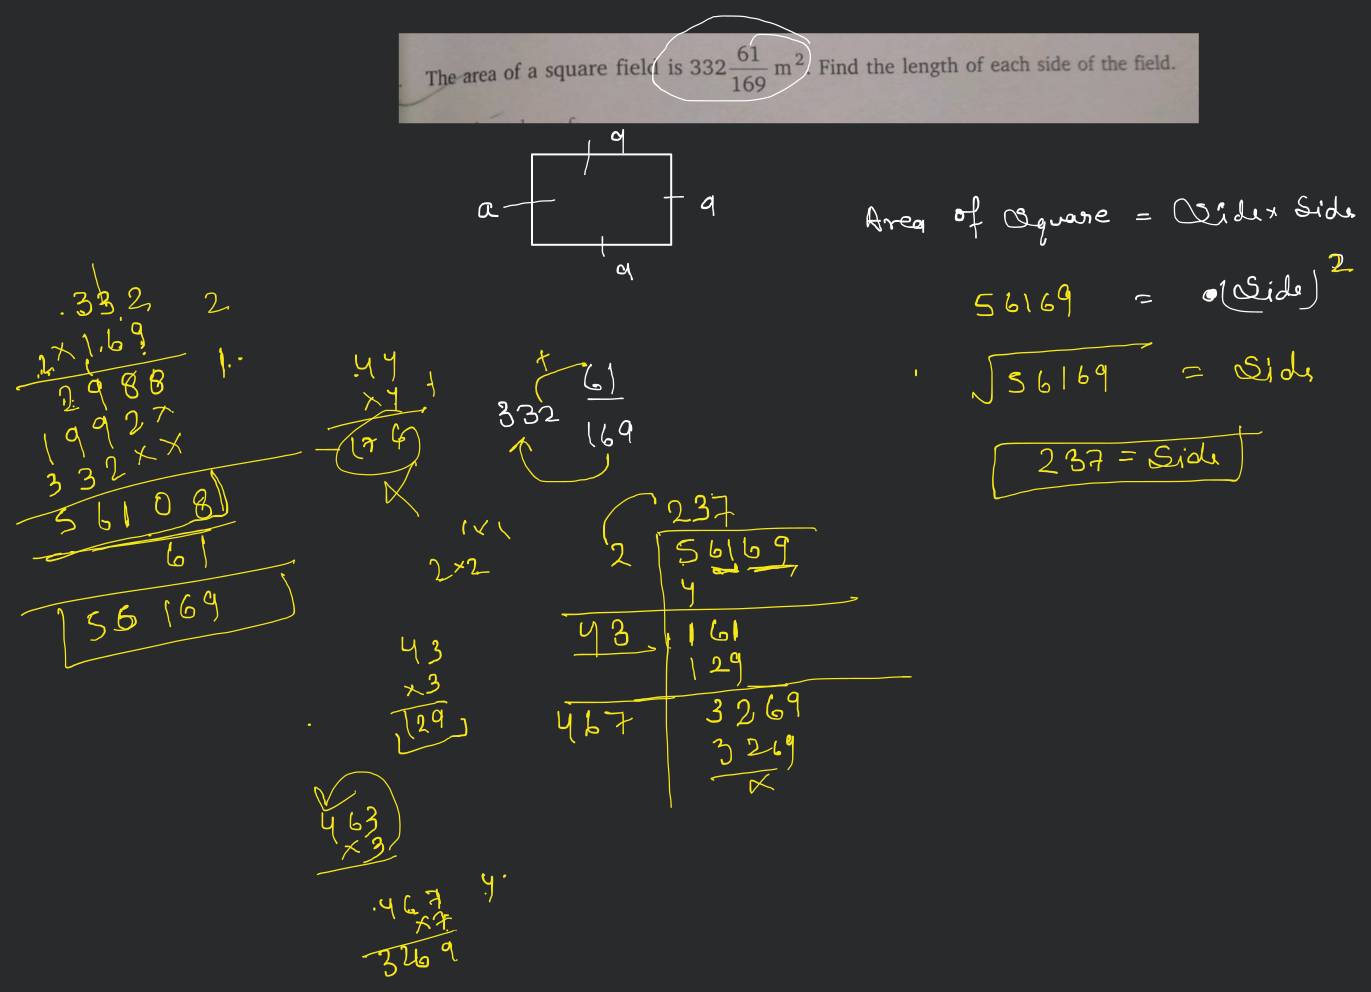 The area of a square field is 332 61/169 m². Find the length of each side of the field.
a
a
a
a
Area of Square = Side x Side
56169 = (Side)²
√56169 = Side
237 = Side
332
x169
2988
1992x
332xx
56108
61
56169
2
1
2
44
x4
176
+
61
332
169
1x1
2x2
237
2
56169
4
43
161
129
467
3269
3269
x
43
x3
129
463
x3
467
x7
3269
4